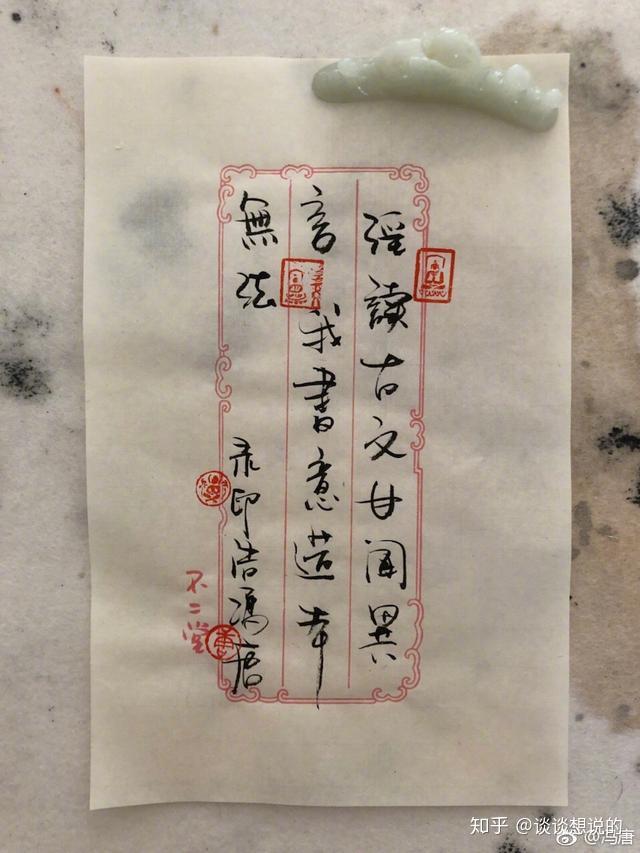 淫讀古文甘聞異
言 我書意造本
無法
录印语馮唐
不二堂
知乎 @谈谈想说的
@冯唐